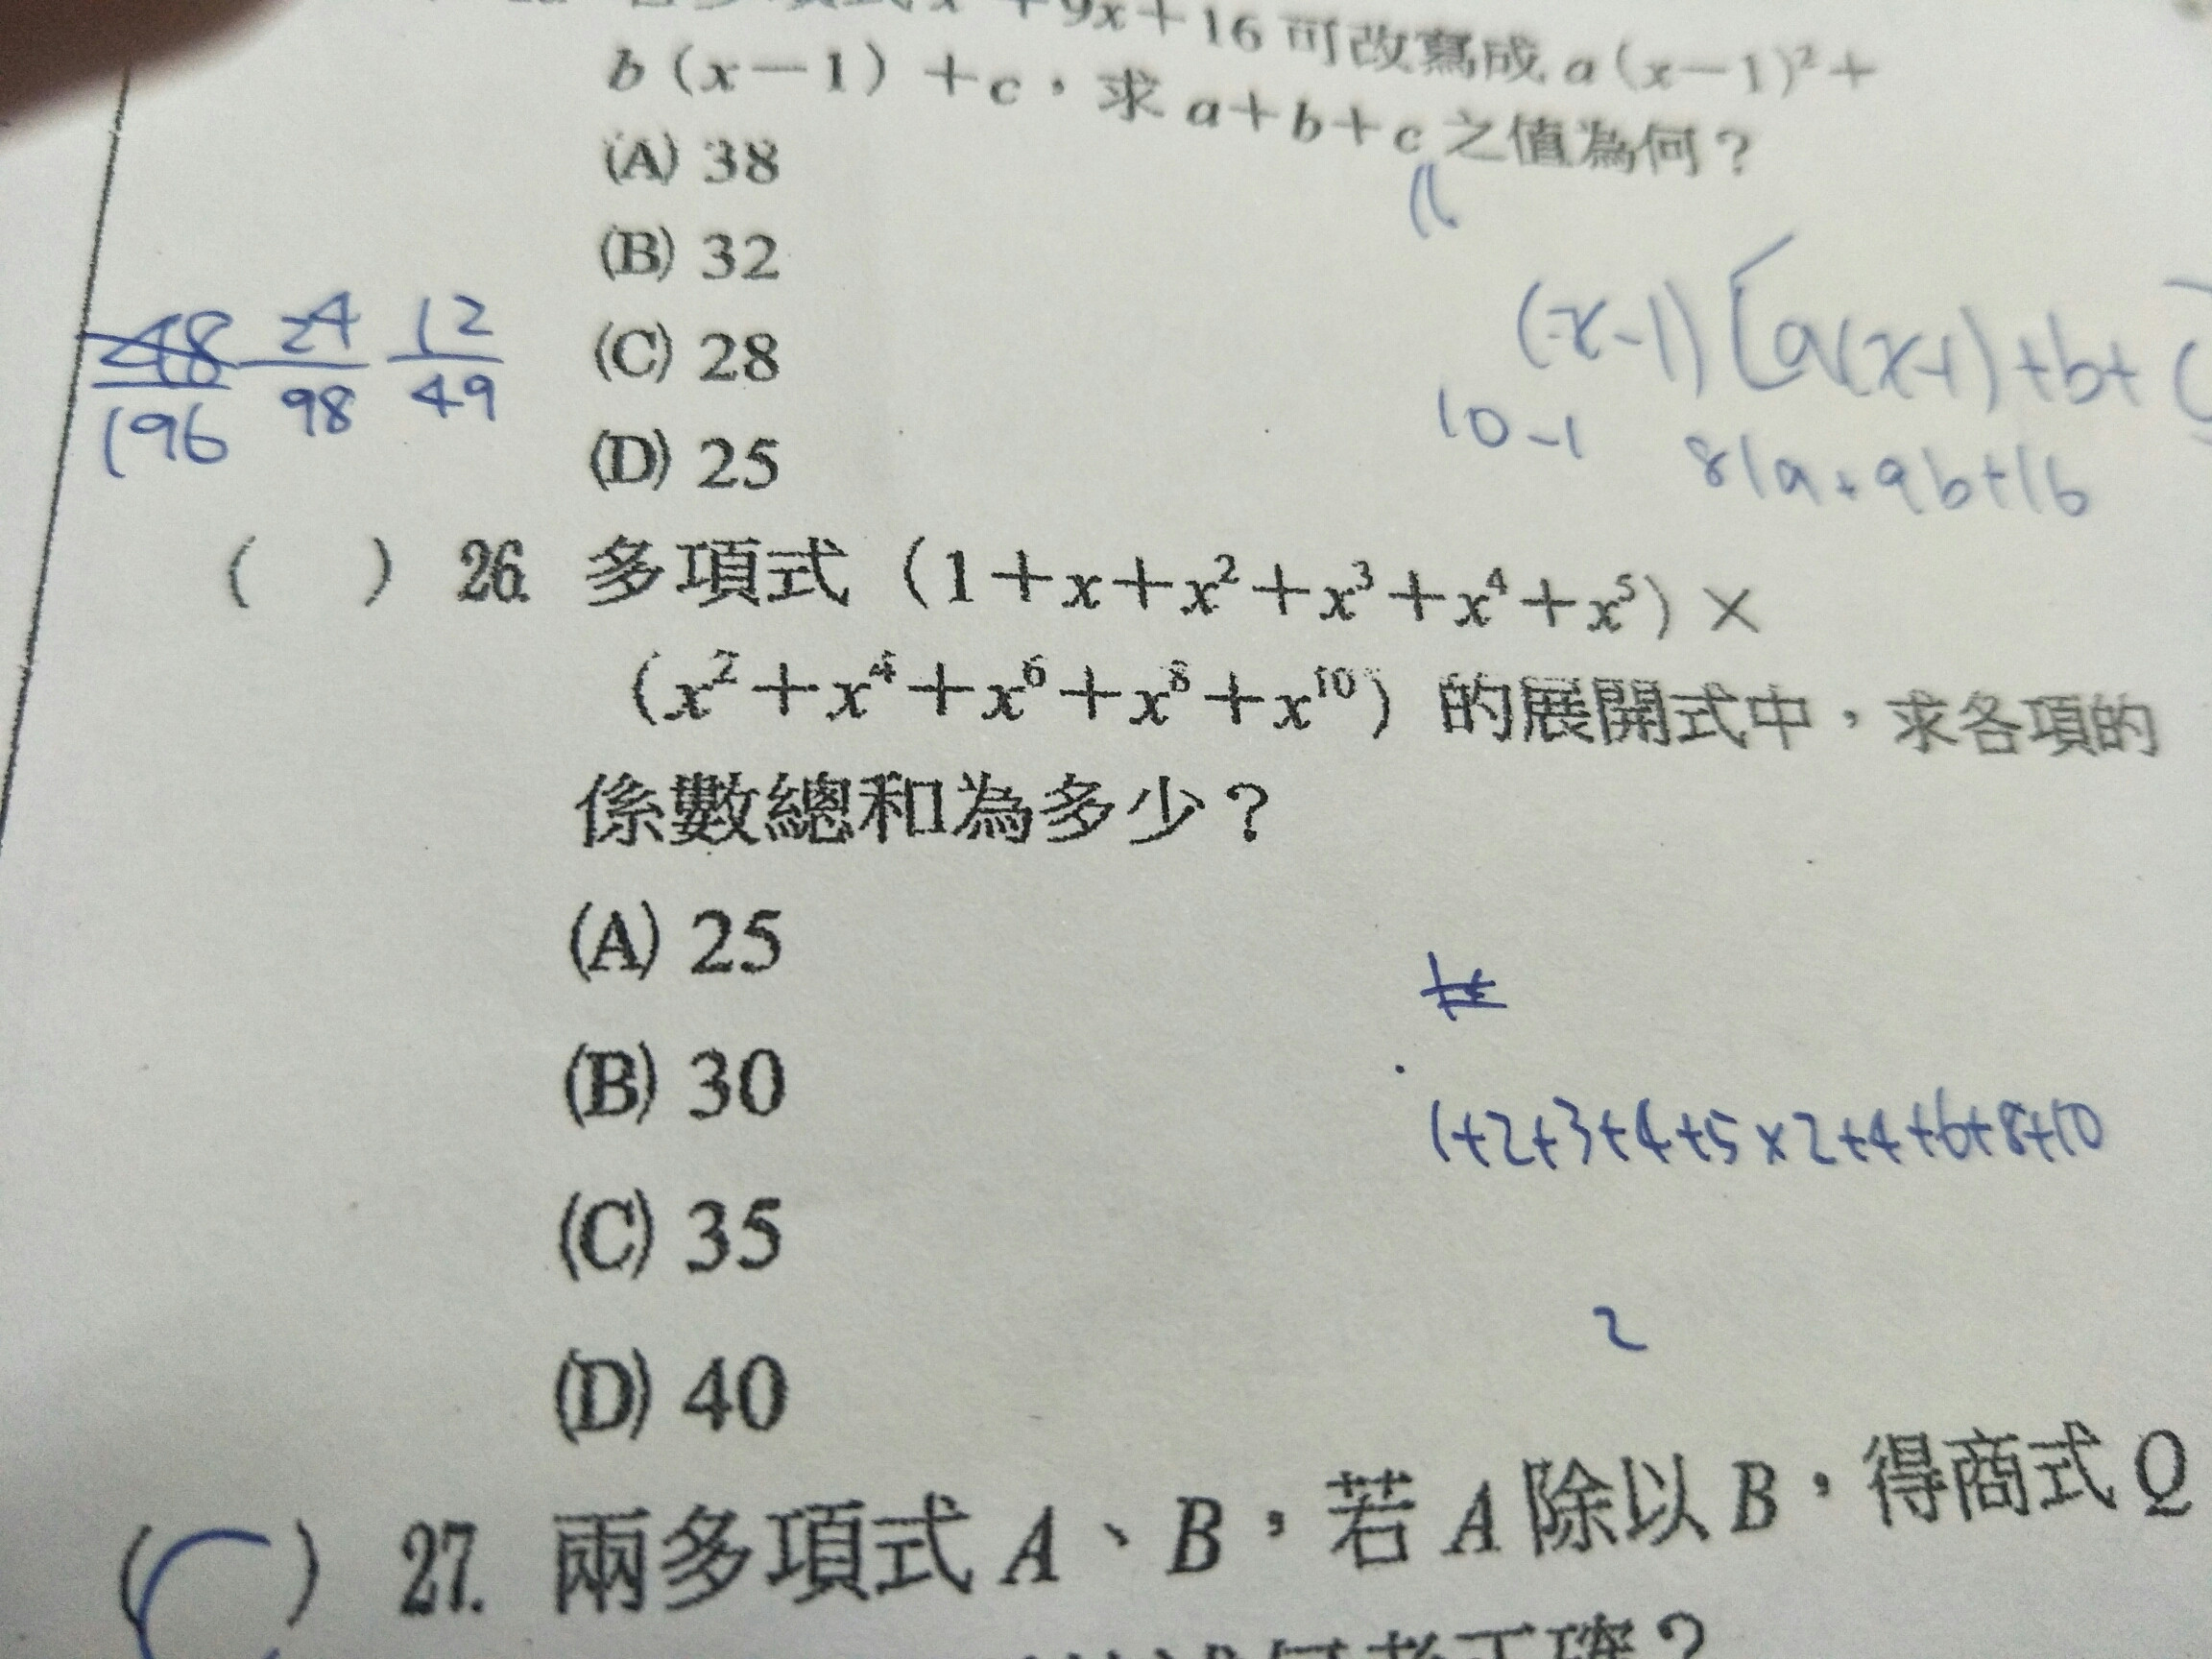 +9x+16 可改寫成 a(x-1)²+
b(x-1)+c，求 a+b+c 之值為何？
(A) 38
(B) 32
(C) 28
(D) 25
48/196 24/98 12/49
(x-1)[a(x-1)+b+
10-1 81a+9b+16
( ) 26. 多項式 (1+x+x²+x³+x⁴+x⁵)×
(x²+x⁴+x⁶+x⁸+x¹⁰) 的展開式中，求各項的
係數總和為多少？
(A) 25
(B) 30
(C) 35
(D) 40
1+2+3+4+5×2+4+6+8+10
2
(C) 27. 兩多項式 A、B，若 A 除以 B，得商式 Q